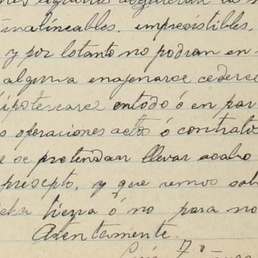 inalineables, imprexistibles,
y por lo tanto no podran en
alguna enajenarse cederse
hipotecarse entodo ó en par
s operaciones acto ó contrato
e se pretendan llevar acabo
presepto, y que vemos sob
tierra ó no para no
Atentamente.